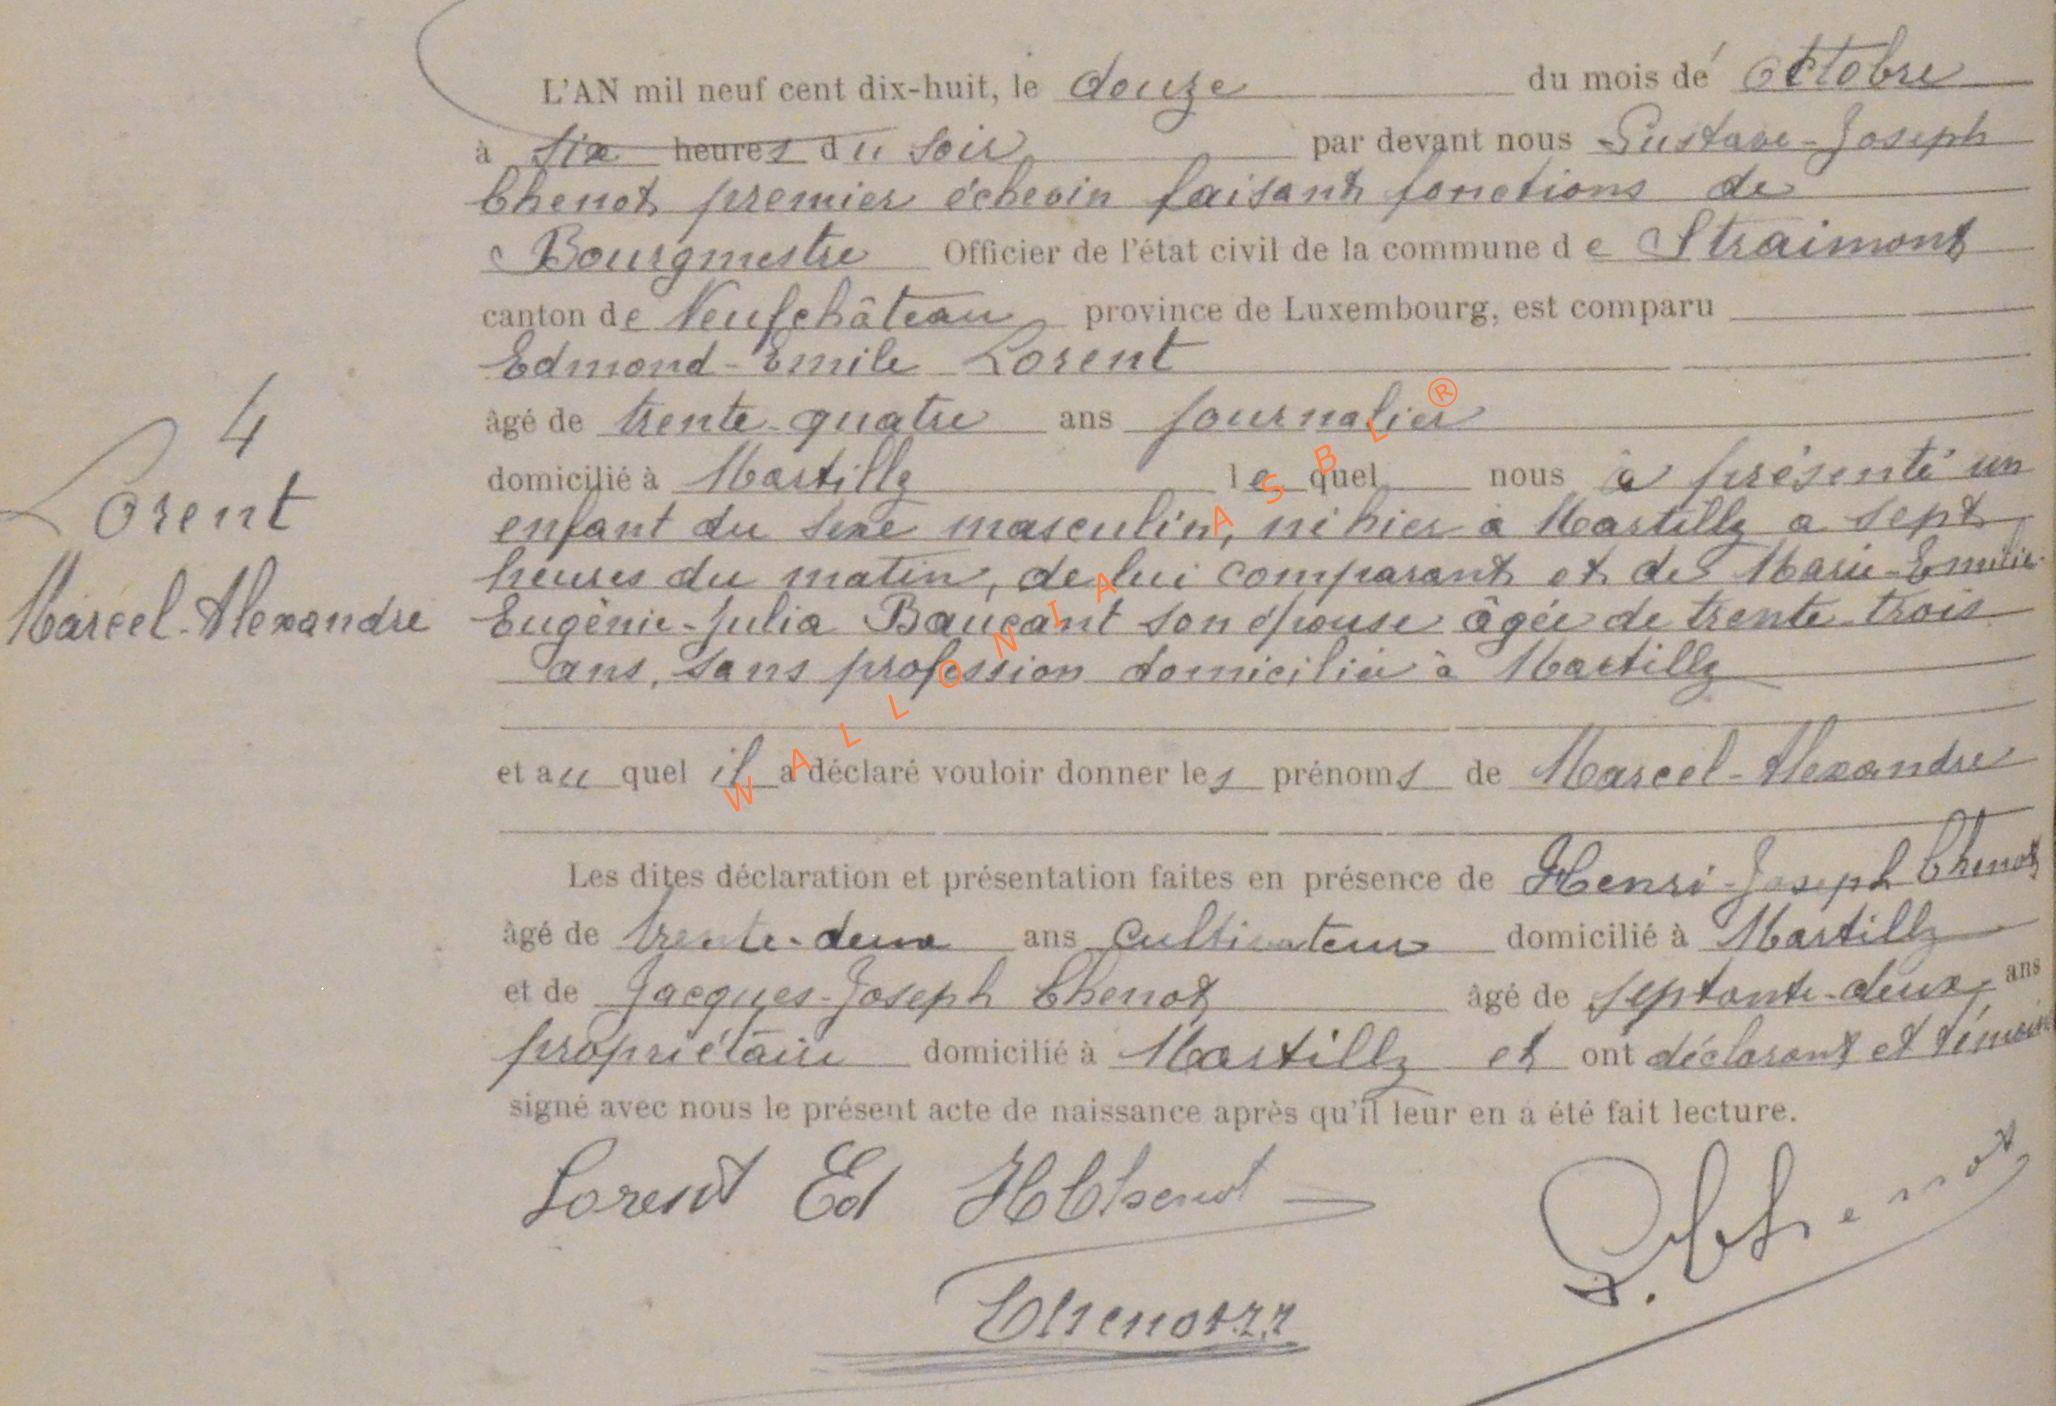 L'AN mil neuf cent dix-huit, le douze du mois de Octobre
à six heures du soir par devant nous Gustave-Joseph
Chenot premier échevin faisant fonctions de
Bourgmestre Officier de l'état civil de la commune de Straimont
canton de Neufchâteau province de Luxembourg, est comparu
Edmond-Emile Lorent
âgé de trente-quatre ans journalier
domicilié à Martilly lequel nous a présenté un
enfant du sexe masculin, né hier à Martilly a sept
heures du matin, de lui comparant et de Marie-Emilie-
Eugènie-Julia Bauçant son épouse âgée de trente-trois
ans, sans profession domiciliée à Martilly
et au quel il a déclaré vouloir donner les prénoms de Marcel-Alexandre
Les dites déclaration et présentation faites en présence de Henri-Joseph Chenot
âgé de trente-deux ans cultivateur domicilié à Martilly
et de Jacques-Joseph Chenot âgé de septante-deux ans
propriétaire domicilié à Martilly et ont déclarant et témoins
signé avec nous le présent acte de naissance après qu'il leur en a été fait lecture.
4
Lorent
Marcel-Alexandre
Lorent Ed H Chenot
Chenot
WALLONIA ASBL ®